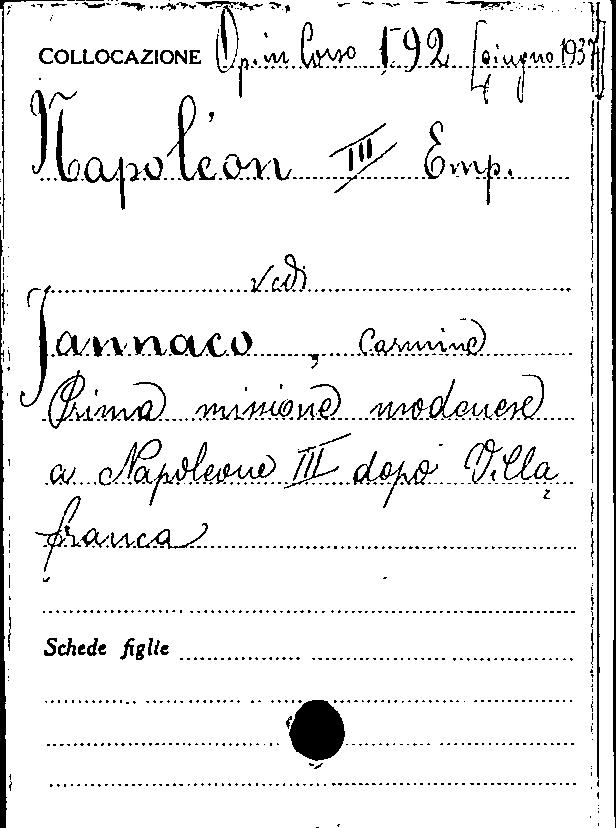 COLLOCAZIONE Op. in Corso 192 [giugno 1937]
Napoléon III Emp.
vedi
Jannaco, Carmine
Prima missione modenese
a Napoleone III dopo Villa
franca
Schede figlie